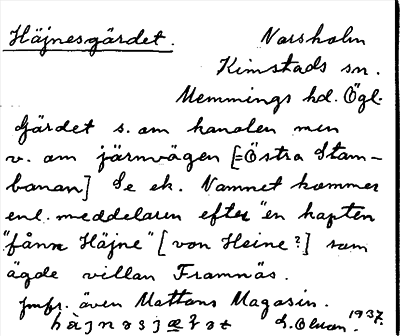 Häjnesgärdet. Norsholm
Kimstads sn.
Memmings hd. Ögl.
Gärdet s. om kanalen men
v. om järnvägen [=Östra Stam-
banan] Se ek. Namnet kommer
enl. meddelaren efter "en kapten
"fånn Häjne" [von Heine?] som
ägde villan Framnäs.
Jmfr. även Mattons Magasin.
1937.